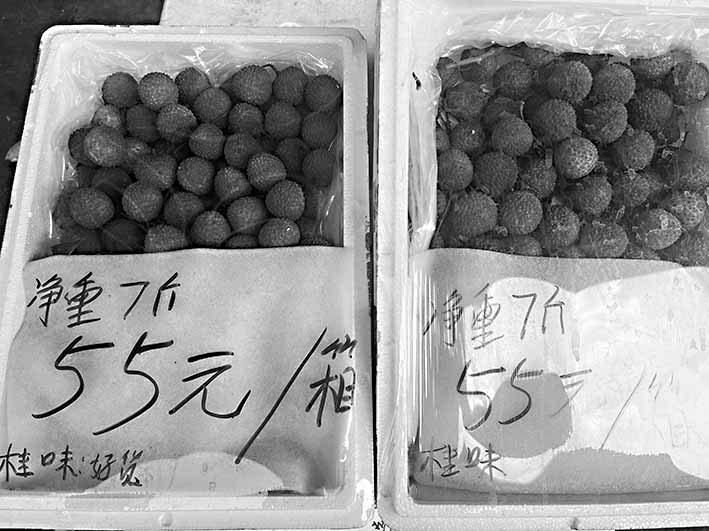 净重7斤
55元/箱
桂味好货
净重7斤
55元/箱
桂味